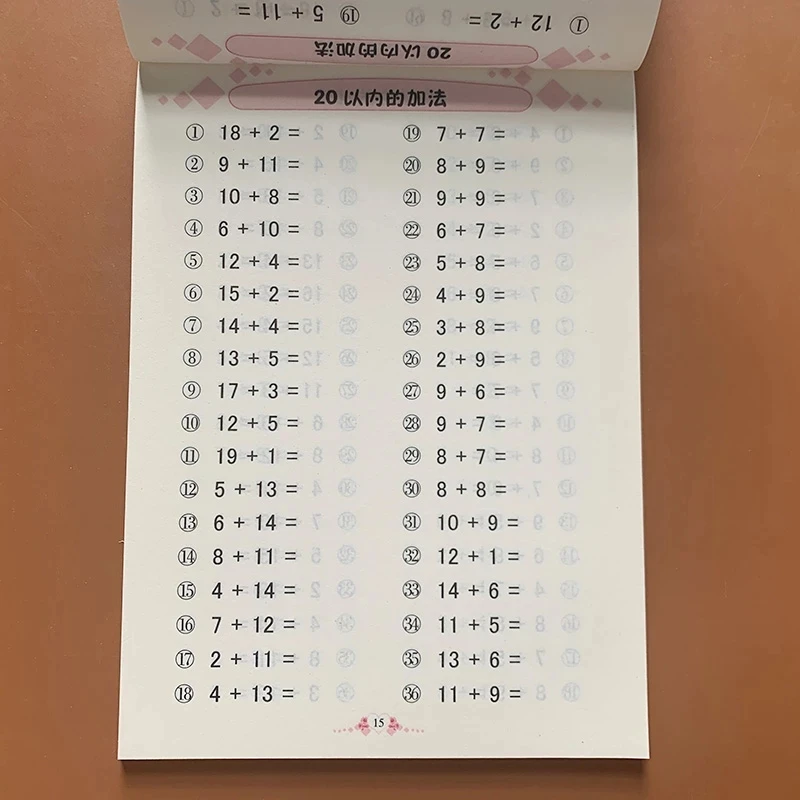 ① 12 + 2 =
⑲ 5 + 11 =
20 以内的加法
20 以内的加法
① 18 + 2 =
② 9 + 11 =
③ 10 + 8 =
④ 6 + 10 =
⑤ 12 + 4 =
⑥ 15 + 2 =
⑦ 14 + 4 =
⑧ 13 + 5 =
⑨ 17 + 3 =
⑩ 12 + 5 =
⑪ 19 + 1 =
⑫ 5 + 13 =
⑬ 6 + 14 =
⑭ 8 + 11 =
⑮ 4 + 14 =
⑯ 7 + 12 =
⑰ 2 + 11 =
⑱ 4 + 13 =
⑲ 7 + 7 =
⑳ 8 + 9 =
㉑ 9 + 9 =
㉒ 6 + 7 =
㉓ 5 + 8 =
㉔ 4 + 9 =
㉕ 3 + 8 =
㉖ 2 + 9 =
㉗ 9 + 6 =
㉘ 9 + 7 =
㉙ 8 + 7 =
㉚ 8 + 8 =
㉛ 10 + 9 =
㉜ 12 + 1 =
㉝ 14 + 6 =
㉞ 11 + 5 =
㉟ 13 + 6 =
㊱ 11 + 9 =
15